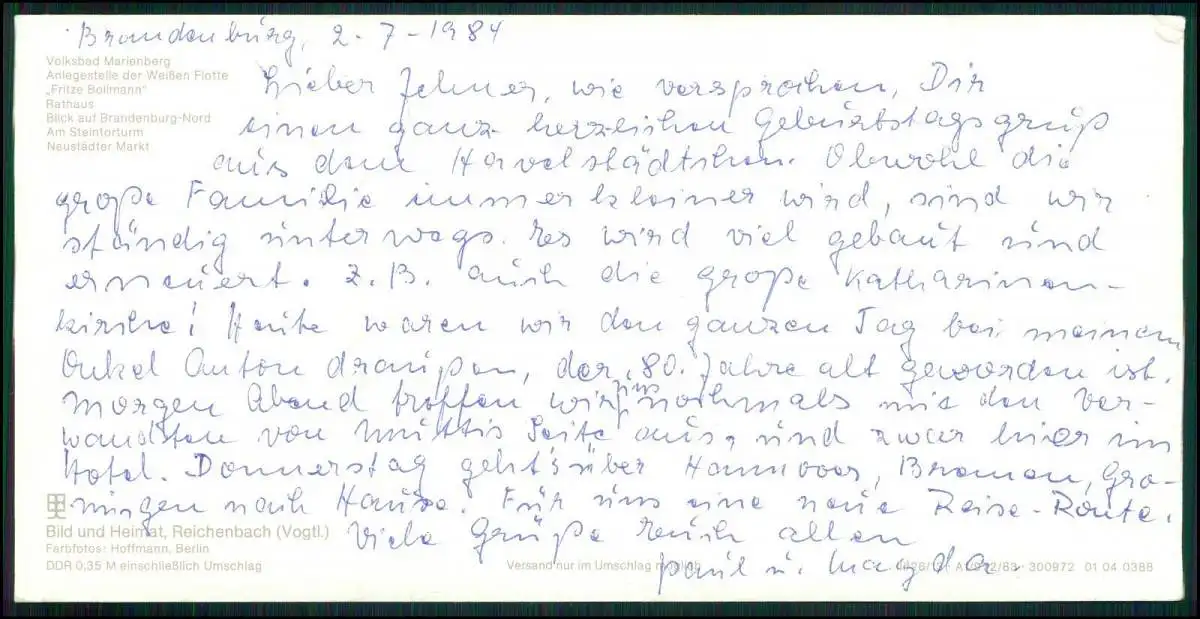 Brandenburg, 2-7-1984
Volksbad Marienberg
Anlegestelle der Weißen Flotte
„Fritze Bollmann"
Rathaus
Blick auf Brandenburg-Nord
Am Steintorturm
Neustädter Markt
Lieber , wie versprochen, Dir
einen ganz herzlichen Geburtstagsgruß
aus dem Havelstädtchen. Obwohl die
große Familie immer kleiner wird, sind wir
ständig unterwegs. Es wird viel gebaut und
erneuert. Z.B. auch die große Katharinen-
kirche! Heute waren wir den ganzen Tag bei meinem
Onkel Anton draußen, der 80. Jahre alt geworden ist.
Morgen Abend treffen wir uns nochmals mit den Ver-
wandten von Muttis Seite aus, und zwar hier im
Hotel. Donnerstag geht's über Hannover, Bremen, Gro-
ningen nach Hause. Für uns eine neue Reise-Route.
Viele Grüße Euch allen
Paul u. Magda.
Bild und Heimat, Reichenbach (Vogtl.)
Farbfotos: Hoffmann, Berlin
DDR 0,35 M einschließlich Umschlag
Versand nur im Umschlag
300972 01 04 0388